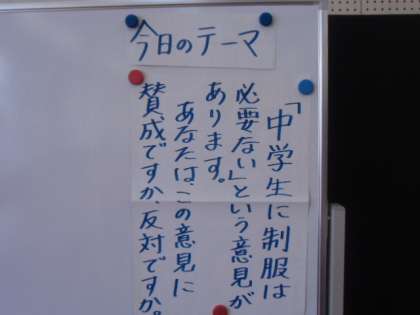 今日のテーマ
「中学生に制服は
必要ない」という意見が
あります。
あなたは、この意見に
賛成ですか、反対ですか。